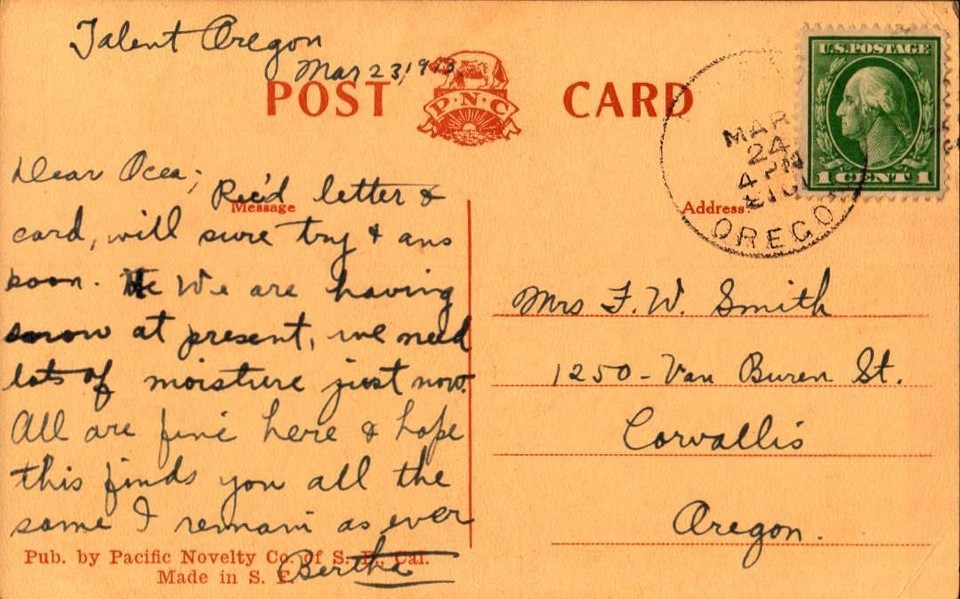 Talent Oregon
Mar 23, 1913
POST CARD
P·N·C
U.S. POSTAGE
1 CENT 1
MAR
24
4 PM
OREGO
Message
Address
Dear Ocea;
Rec'd letter &
card, will sure try & ans
soon. We are having
snow at present, we need
lots of moisture just now.
All are fine here & hope
this finds you all the
same I remain as ever
Bertha
Mrs F. W. Smith
1250 - Van Buren St.
Corvallis
Oregon.
Pub. by Pacific Novelty Co. of S. F., Cal.
Made in S. F.